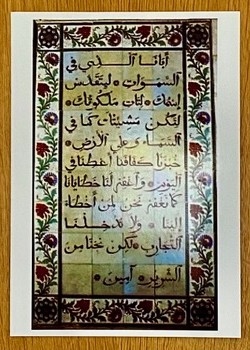 أبانا الذي في
السموات • ليتقدس
إسمك • ليأت ملكوتك •
لتكن مشيئتك كما في
السماء وعلى الأرض •
خبزنا كفافنا أعطنا في
اليوم • وأغفر لنا خطايانا
كما نغفر نحن لمن أخطاء
إلينا • ولا تدخلنا
التجارب • لكن نجنا من
الشرير • آمين •